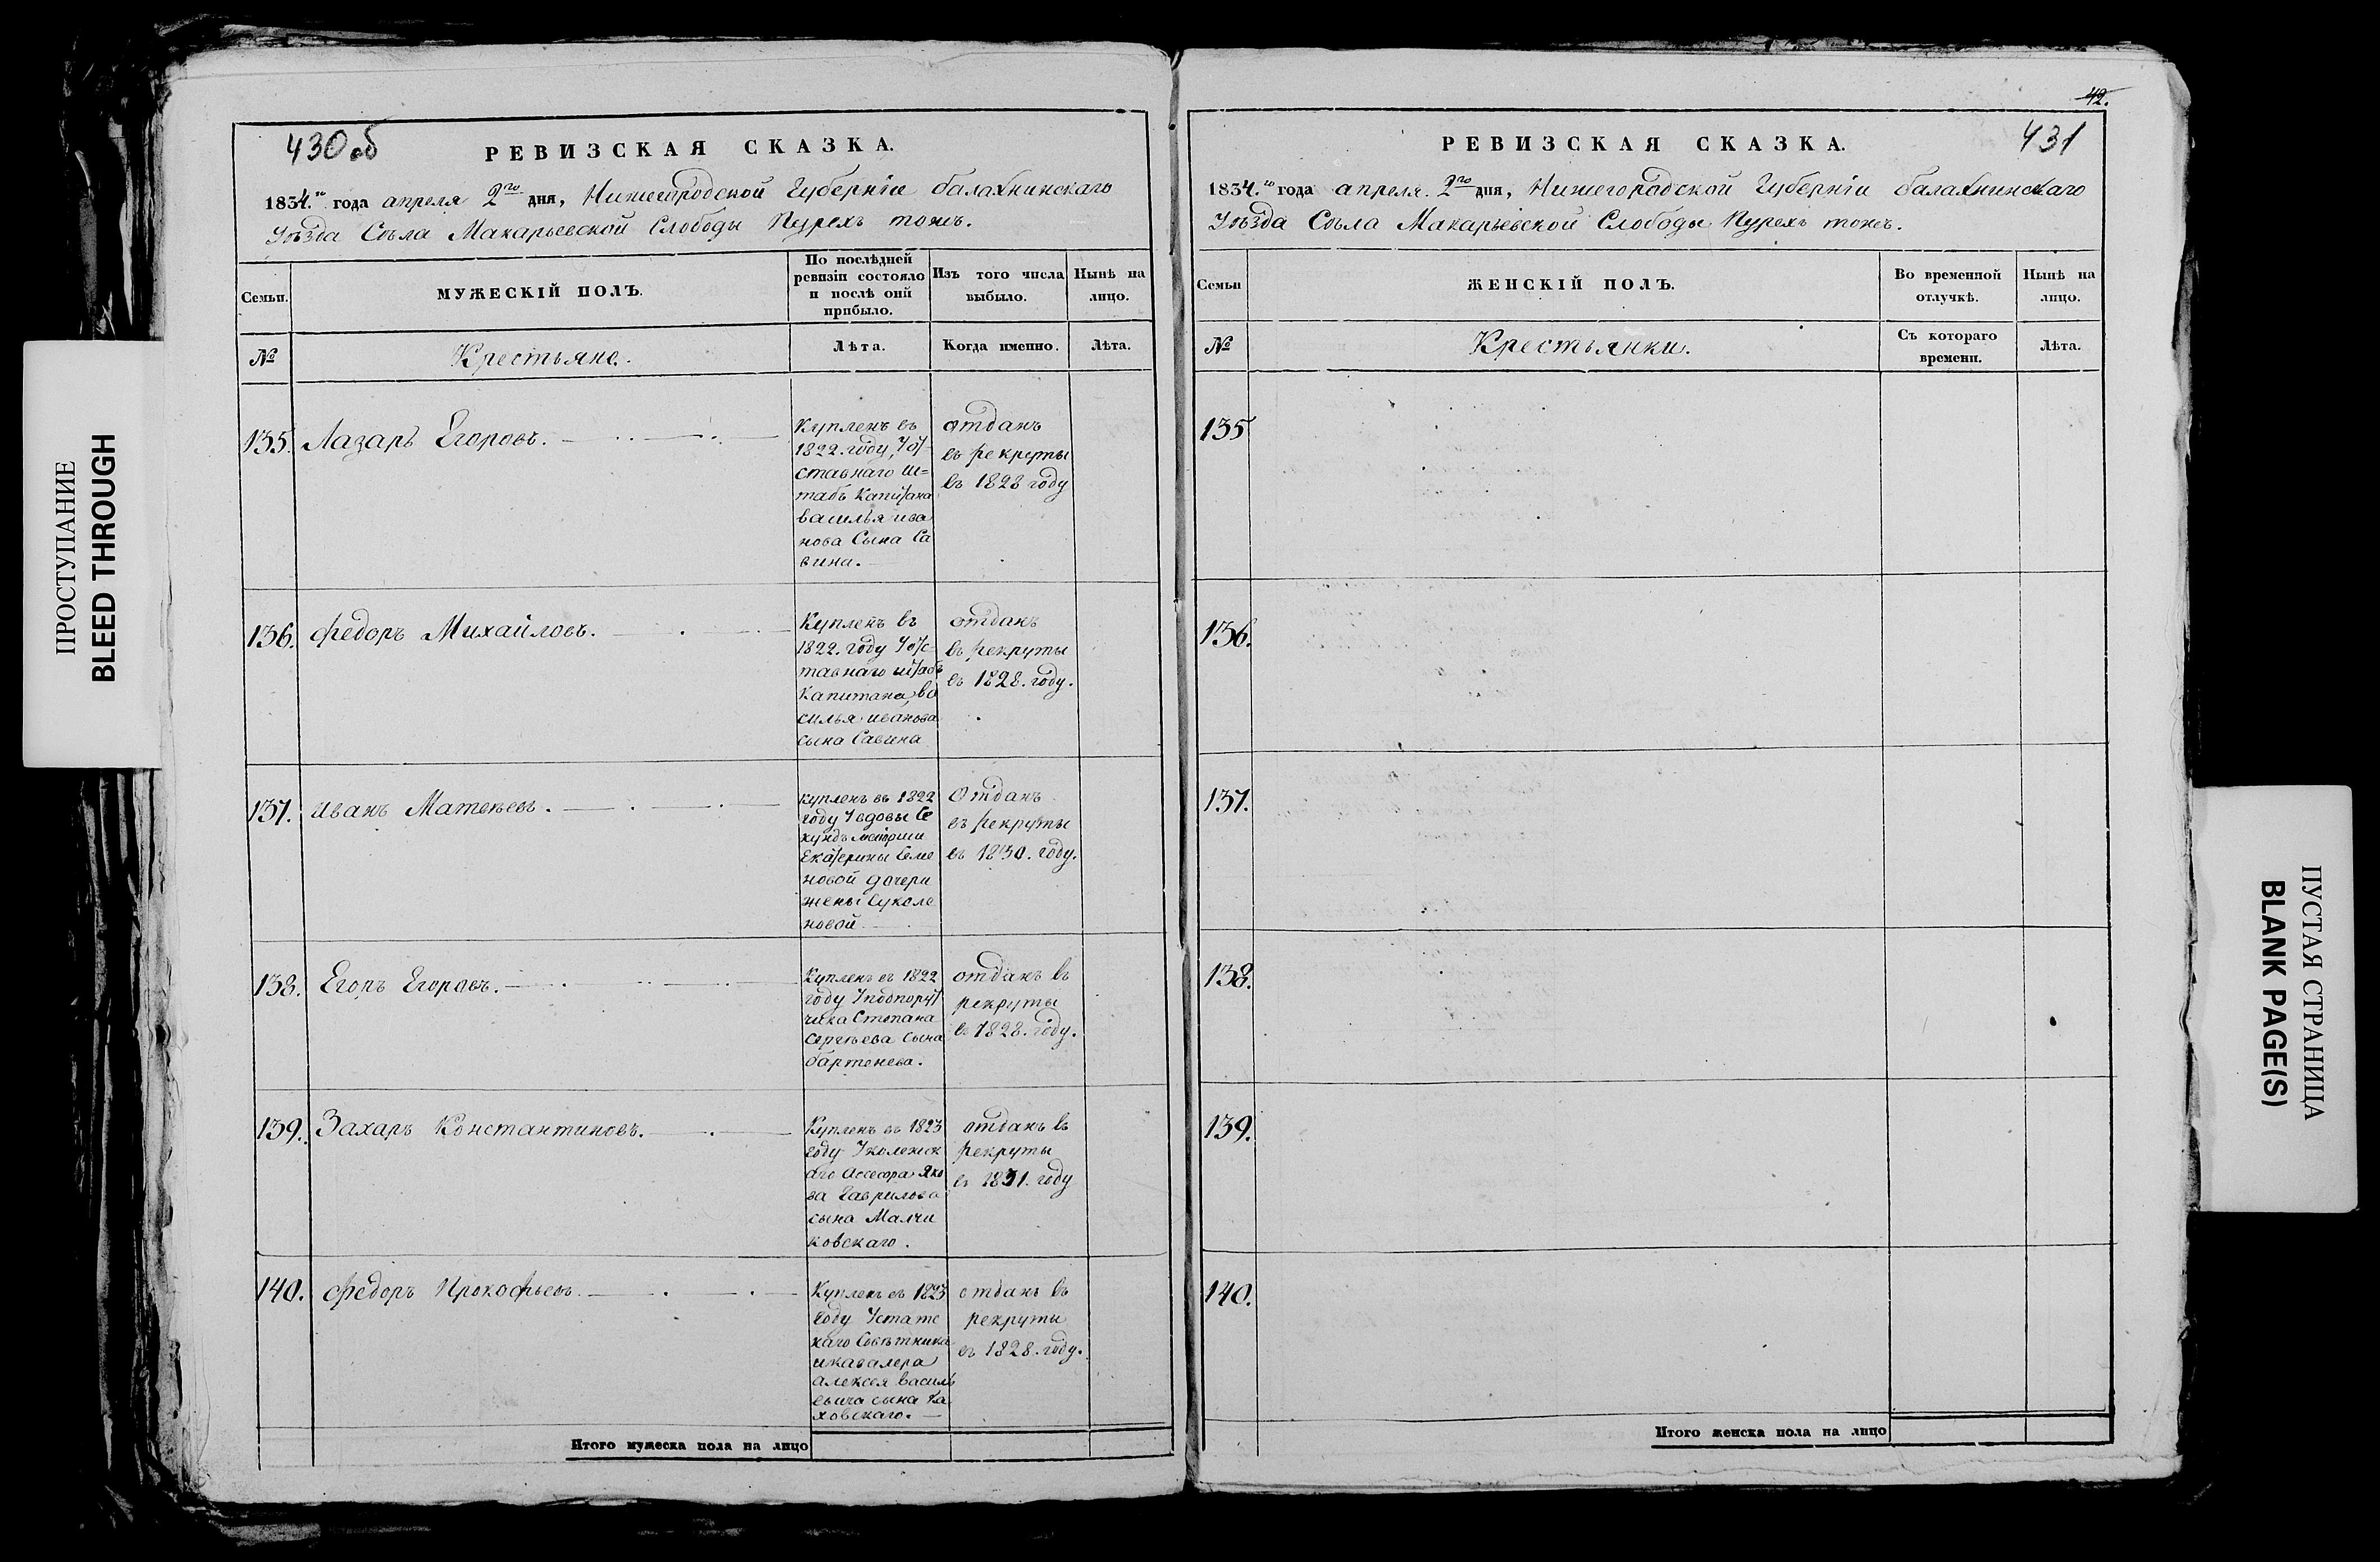 ПРОСТУПАНИЕ
BLEED THROUGH
430об
РЕВИЗСКАЯ СКАЗКА.
1834.го года апреля 2го дня, Нижегородской Губернiи балахнинскаго
Уѣзда Сѣла Макарьевской Слободы Пурехъ тожъ.
Семьи.
МУЖЕСКІЙ ПОЛЪ.
По послѣдней
ревизіи состояло
и послѣ оній
прибыло.
Изъ того числа
выбыло.
Нынѣ на
лицо.
№
Крестьяне.
Лѣта.
Когда именно.
Лѣта.
135. Лазарь Егоровъ.
Купленъ въ
1822. году, Уот
ставнаго Ш=
табъ Капитана
василья ива
нова Сына Са
вина.
отданъ
въ рекруты
въ 1828 году
136. федоръ Михайловъ.
Купленъ въ
1822. году Уотс
тавнаго штабъ
Капитана, ва
силья иванова
сына Савина
отданъ
въ рекруты
въ 1828. году.
137. иванъ Матвѣевъ.
купленъ въ 1822
году Увдовы Се
кундъ маіорши
Екатерины Семе
новой дочери
жены Суколе
новой
Отданъ
въ рекруты
въ 1830. году.
138. Егоръ Егоровъ.
Купленъ въ 1822
году Уподпору
чика Степана
Сергѣева Сына
бартенева.
отданъ въ
рекруты
въ 1828. году.
139. Захаръ Константиновъ.
Купленъ въ 1823
году Уколежск
аго Ассесора Яко
ва Гаврилова
сына Малчи
ковскаго.
отданъ въ
рекруты
въ 1831. году
140. федоръ Прокофьевъ.
Купленъ въ 1823
году Устатс
каго Совѣтника
икавалера
алексея василь
евича сына Ка
ховскаго.
отданъ въ
рекруты
въ 1828. году.
Итого мужеска пола на лицо
42.
431
РЕВИЗСКАЯ СКАЗКА.
1834.го года апреля. 2го дня, Нижегородской Губернiи балахнинскаго
Уѣзда Сѣла Макарьевской Слободы Пурехъ тожъ.
Семьи
ЖЕНСКІЙ ПОЛЪ.
Во временной
отлучкѣ.
Нынѣ на
лицо.
№
Крестьянки.
Съ котораго
времени.
Лѣта.
135
136.
137.
138.
139.
140.
Итого женска пола на лицо
ПУСТАЯ СТРАНИЦА
BLANK PAGE(S)